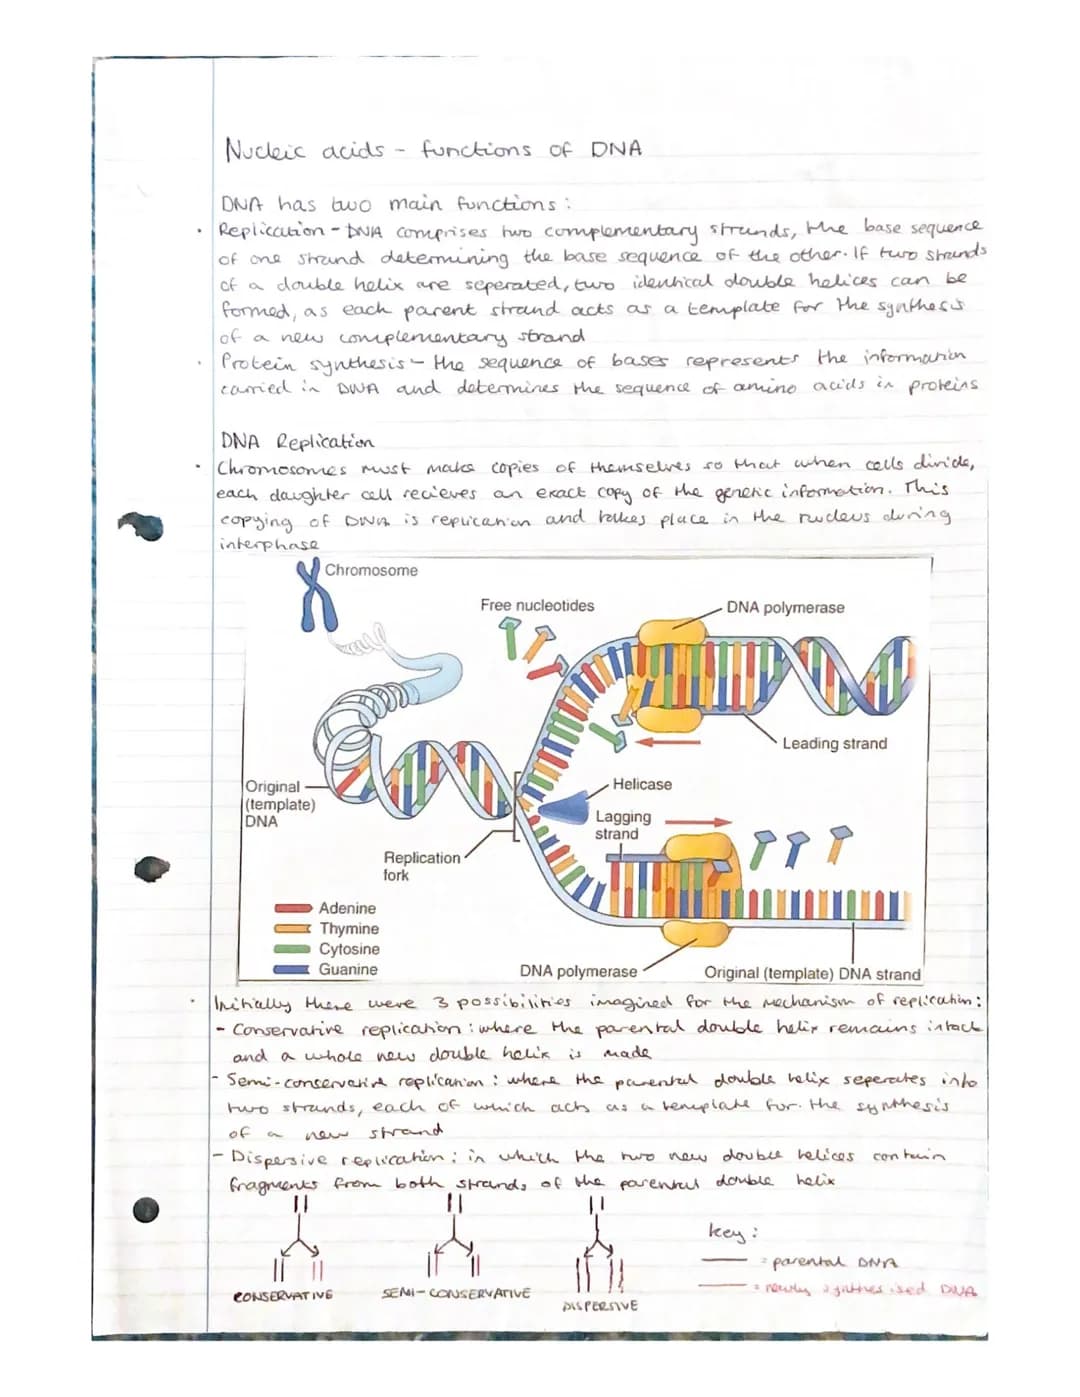 Nucleic acids - functions of DNA
DNA has two main functions:
• Replication - DNA comprises two complementary strands, the base sequence
of one strand determining the base sequence of the other. If two strands
of a double helix are seperated, two identical double helices can be
formed, as each parent strand acts as a template for the synthesis
of a new complementary strand
• Protein synthesis - the sequence of bases represents the information
carried in DNA and determines the sequence of amino acids in proteins
DNA Replication
• Chromosomes must make copies of themselves so that when cells divide,
each daughter cell recieves an exact copy of the genetic information. This
copying of DNA is replication and takes place in the nucleus during
interphase
Chromosome
Free nucleotides
DNA polymerase
Leading strand
Original
(template)
DNA
Helicase
Lagging
strand
Replication
fork
Adenine
Thymine
Cytosine
Guanine
DNA polymerase
Original (template) DNA strand
• Initially there were 3 possibilities imagined for the mechanism of replication:
- Conservative replication: where the parental double helix remains intact
and a whole new double helix is made
- Semi-conservative replication: where the parental double helix seperates into
two strands, each of which acts as a template for the synthesis
of a new strand
- Dispersive replication: in which the two new double helices contain
fragments from both strands of the parental double helix
CONSERVATIVE
SEMI-CONSERVATIVE
DISPERSIVE
key:
= parental DNA
= newly synthesised DNA